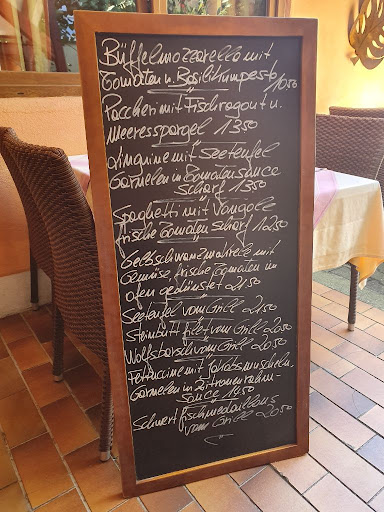 Büffelmozzarella mit
Tomaten u. Basilikumpesto 10 50
Paccheri mit Fischragout u.
Meeresspargel 13 50
Linguine mit Seeteufel
Garnelen in Tomatensauce
scharf 13 50
Spaghetti mit Vongole
frische Tomaten scharf 12 50
Gelbschwanzmakrele mit
Gemüse, frische Tomaten im
Ofen gedünstet 21 50
Seeteufel vom Grill 21 50
Steinbutt filet vom Grill 20 50
Wolfsbarsch vom Grill 20 50
Fettuccine mit Jakobsmuscheln,
Garnelen in Zitronenrahm-
sauce 14 50
Schwertfischmedaillons
vom Grill 20 50